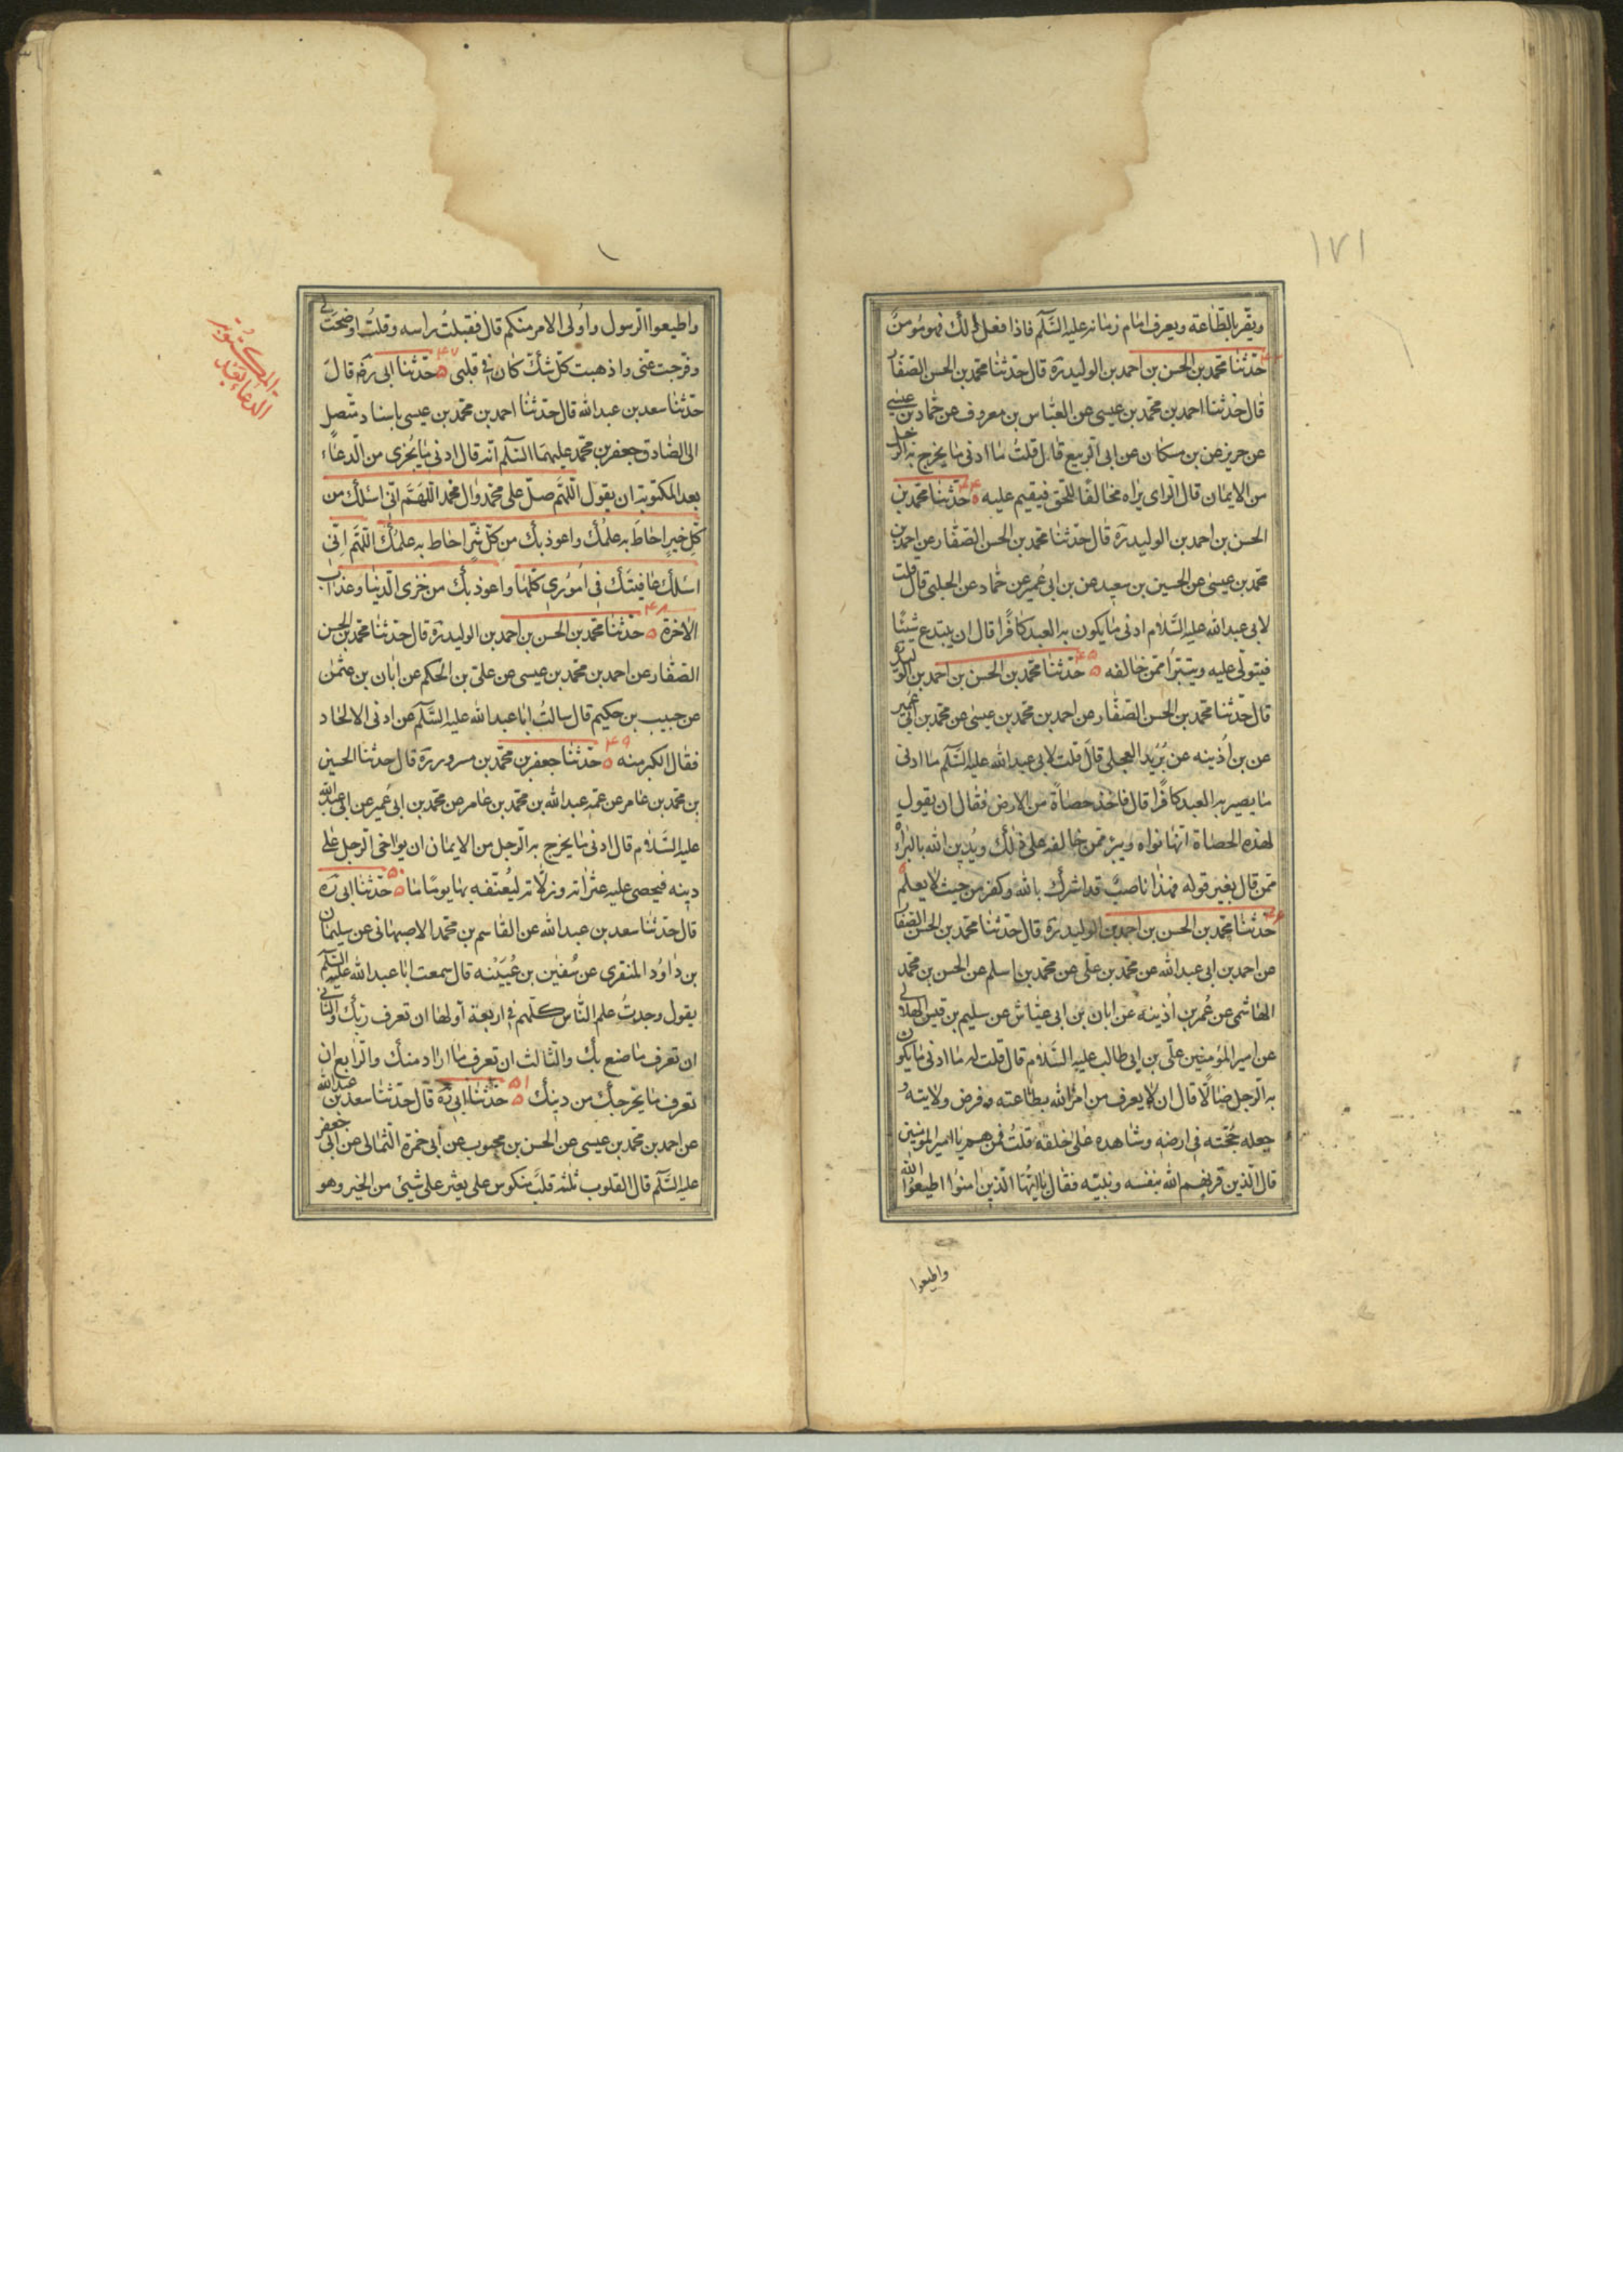 ١٧١
ويقر بالطاعة ويعرف امام زمانه عليه السلم فاذا فعل ذلك فهو مؤمن
٤٣ حدثنا محمد بن الحسن بن احمد بن الوليد ره قال حدثنا محمد بن الحسن الصفار
قال حدثنا احمد بن محمد بن عيسى عن العباس بن معروف عن حماد بن عيسى
عن حريز عن بن مسكان عن ابى الربيع قال قلت ما ادنى ما يخرج به الرجل
من الايمان قال الراى يراه مخالفا للحق فيقيم عليه ٤٤ حدثنا محمد بن
الحسن بن احمد بن الوليد ره قال حدثنا محمد بن الحسن الصفار عن احمد بن
محمد بن عيسى عن الحسين بن سعيد عن بن ابى عمير عن حماد عن الحلبى قال قلت
لابى عبد الله عليه السلام ادنى ما يكون به العبد كافرا قال ان يبتدع شيئا
فيتولى عليه ويتبرأ ممن خالفه ٤٥ حدثنا محمد بن الحسن بن احمد بن الوليد ره
قال حدثنا محمد بن الحسن الصفار عن احمد بن محمد بن عيسى عن محمد بن ابى عمير
عن بن اذينه عن بريد العجلى قال قلت لابى عبد الله عليه السلم ما ادنى
ما يصير به العبد كافرا قال فاخذ حصاة من الارض فقال ان يقول
لهذه الحصاة انها نواه ويبرء ممن خالفه على ذلك ويدين الله بالبراه
ممن قال بغير قوله فهذا ناصب قد اشرك بالله وكفر من حيث لا يعلم
٤٦ حدثنا محمد بن الحسن بن احمد بن الوليد ره قال حدثنا محمد بن الحسن الصفار
عن احمد بن ابى عبد الله عن محمد بن على عن محمد بن اسلم عن الحسن بن محمد
الهاشمى عن عمر بن اذينه عن ابان بن ابى عياش عن سليم بن قيس الهلالى
عن امير المؤمنين على بن ابى طالب عليه السلام قال قلت له ما ادنى ما يكون
به الرجل ضالا قال ان لا يعرف من امر الله بطاعته وفرض ولايته و
جعله حجته فى ارضه وشاهده على خلقه قلت فمن هم يا امير المؤمنين
قال الذين قرنهم الله بنفسه ونبيه فقال يا ايها الذين امنوا اطيعوا الله
واطيعوا
واطيعوا الرسول واولى الامر منكم قال فقبلت راسه وقلت اوضحت لى
وفرجت عنى واذهبت كل شك كان فى قلبى ٤٧ حدثنا ابى ره قال
حدثنا سعد بن عبد الله قال حدثنا احمد بن محمد بن عيسى باسناد متصل
الى الصادق جعفر بن محمد عليهما السلم انه قال ادنى ما يجزى من الدعاء
بعد المكتوبة ان يقول اللهم صل على محمد وال محمد اللهم انى اسئلك من
كل خير احاط به علمك واعوذ بك من كل شر احاط به علمك اللهم انى
اسئلك عافيتك فى امورى كلها واعوذ بك من خزى الدنيا وعذاب
الاخرة ٤٨ حدثنا محمد بن الحسن بن احمد بن الوليد ره قال حدثنا محمد بن الحسن
الصفار عن احمد بن محمد بن عيسى عن على بن الحكم عن ابان بن عثمن
عن حبيب بن حكيم قال سالت ابا عبد الله عليه السلم عن ادنى الالحاد
فقال الكبر منه ٤٩ حدثنا جعفر بن محمد بن مسرور ره قال حدثنا الحسين
بن محمد بن عامر عن عمه عبد الله بن محمد بن عامر عن محمد بن ابى عمير عن ابى عبد الله
عليه السلام قال ادنى ما يخرج به الرجل من الايمان ان يواخى الرجل على
دينه فيحصى عليه عثراته وزلاته ليعنفه بها يوما ما ٥٠ حدثنا ابى ره
قال حدثنا سعد بن عبد الله عن القاسم بن محمد الاصبهانى عن سليمان
بن داود المنقرى عن سفين بن عيينه قال سمعت ابا عبد الله عليه السلم
يقول وجدت علم الناس كلهم فى اربعة اولها ان تعرف ربك والثانى
ان تعرف ما صنع بك والثالث ان تعرف ما اراد منك والرابع ان
تعرف ما يخرجك من دينك ٥١ حدثنا ابى ره قال حدثنا سعد بن عبد الله
عن احمد بن محمد بن عيسى عن الحسن بن محبوب عن ابى حمزة الثمالى عن ابى جعفر
عليه السلم قال القلوب ثلثه قلب منكوس على يعثر على شيئ من الخير وهو
الدعا بعد
المكتوبة